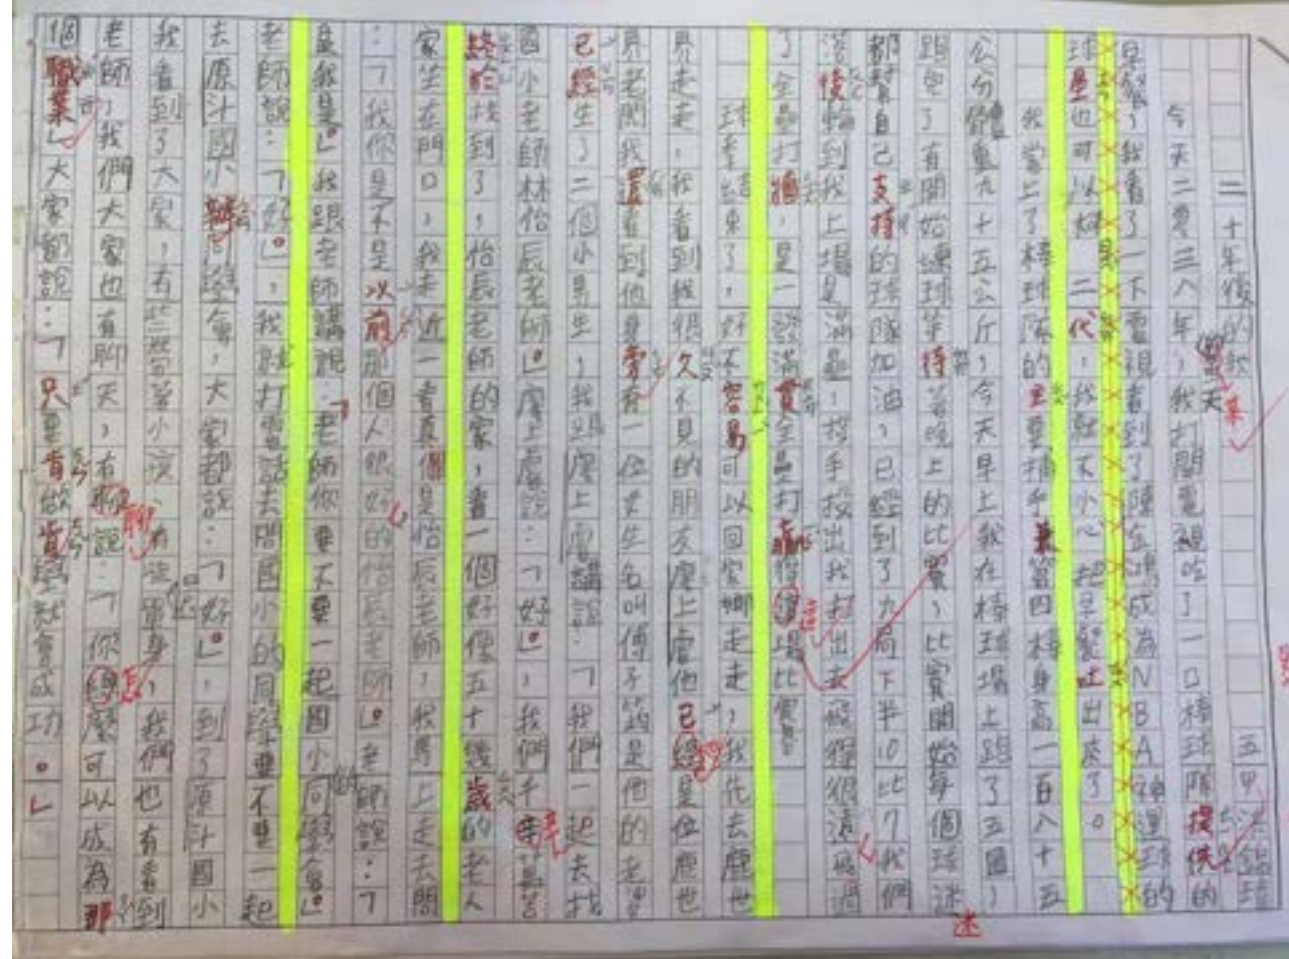 二十年後的某天
五甲 江
今天二零三八年，我打開電視吃了一口棒球隊提供的
早餐，我看了一下電視看到了陳 成為NBA神運球的
球星也可以 二代，我就不小心把早餐吐出來了。
我當上了棒球隊的主要捕手兼第四棒身高一百八十五
公分體重九十五公斤，今天早上我在棒球場上跑了五圈，
跑完了有開始練球等待著晚上的比賽，比賽開始每個球迷
都替自己支持的球隊加油，已經到了九局下半10比7我們
落後輪到我上場是滿壘，投手投出我打出去飛得很遠飛過
了全壘打牆，是一發滿貫全壘打贏得這場比賽
球季結束了，好不容易可以回家鄉走走，我先去鹿世
界走走，我看到我很久不見的朋友廖上 他已經是位鹿世
界老闆我還看到他身旁有一位女生名叫傅子 是他的老婆
已經生了二個小男生，我跟廖上 講說：「我們一起去找
國小老師林怡辰老師」廖上 說：「好」。，我們千辛萬苦
終於找到了，怡辰老師的家，看一個好像五十幾歲的老人
家坐在門口，我走近一看真的是怡辰老師，我馬上走去問
：「我你是不是以前那個人很好的怡辰老師」。老師說：「
是我是」。我跟老師講說：「老師你要不要一起國小同學會」
老師說：「好」。，我就打電話去問國小的同學要不要一起
去原斗國小辦同學會，大家都說：「好」。，到了原斗國小
我看到了大家，有些 單身，我們也有看到
老師，我們大家也有聊天，有聊說：「你怎麼可以成為那
個職業」大家都說：「只要肯做肯學就會成功。」